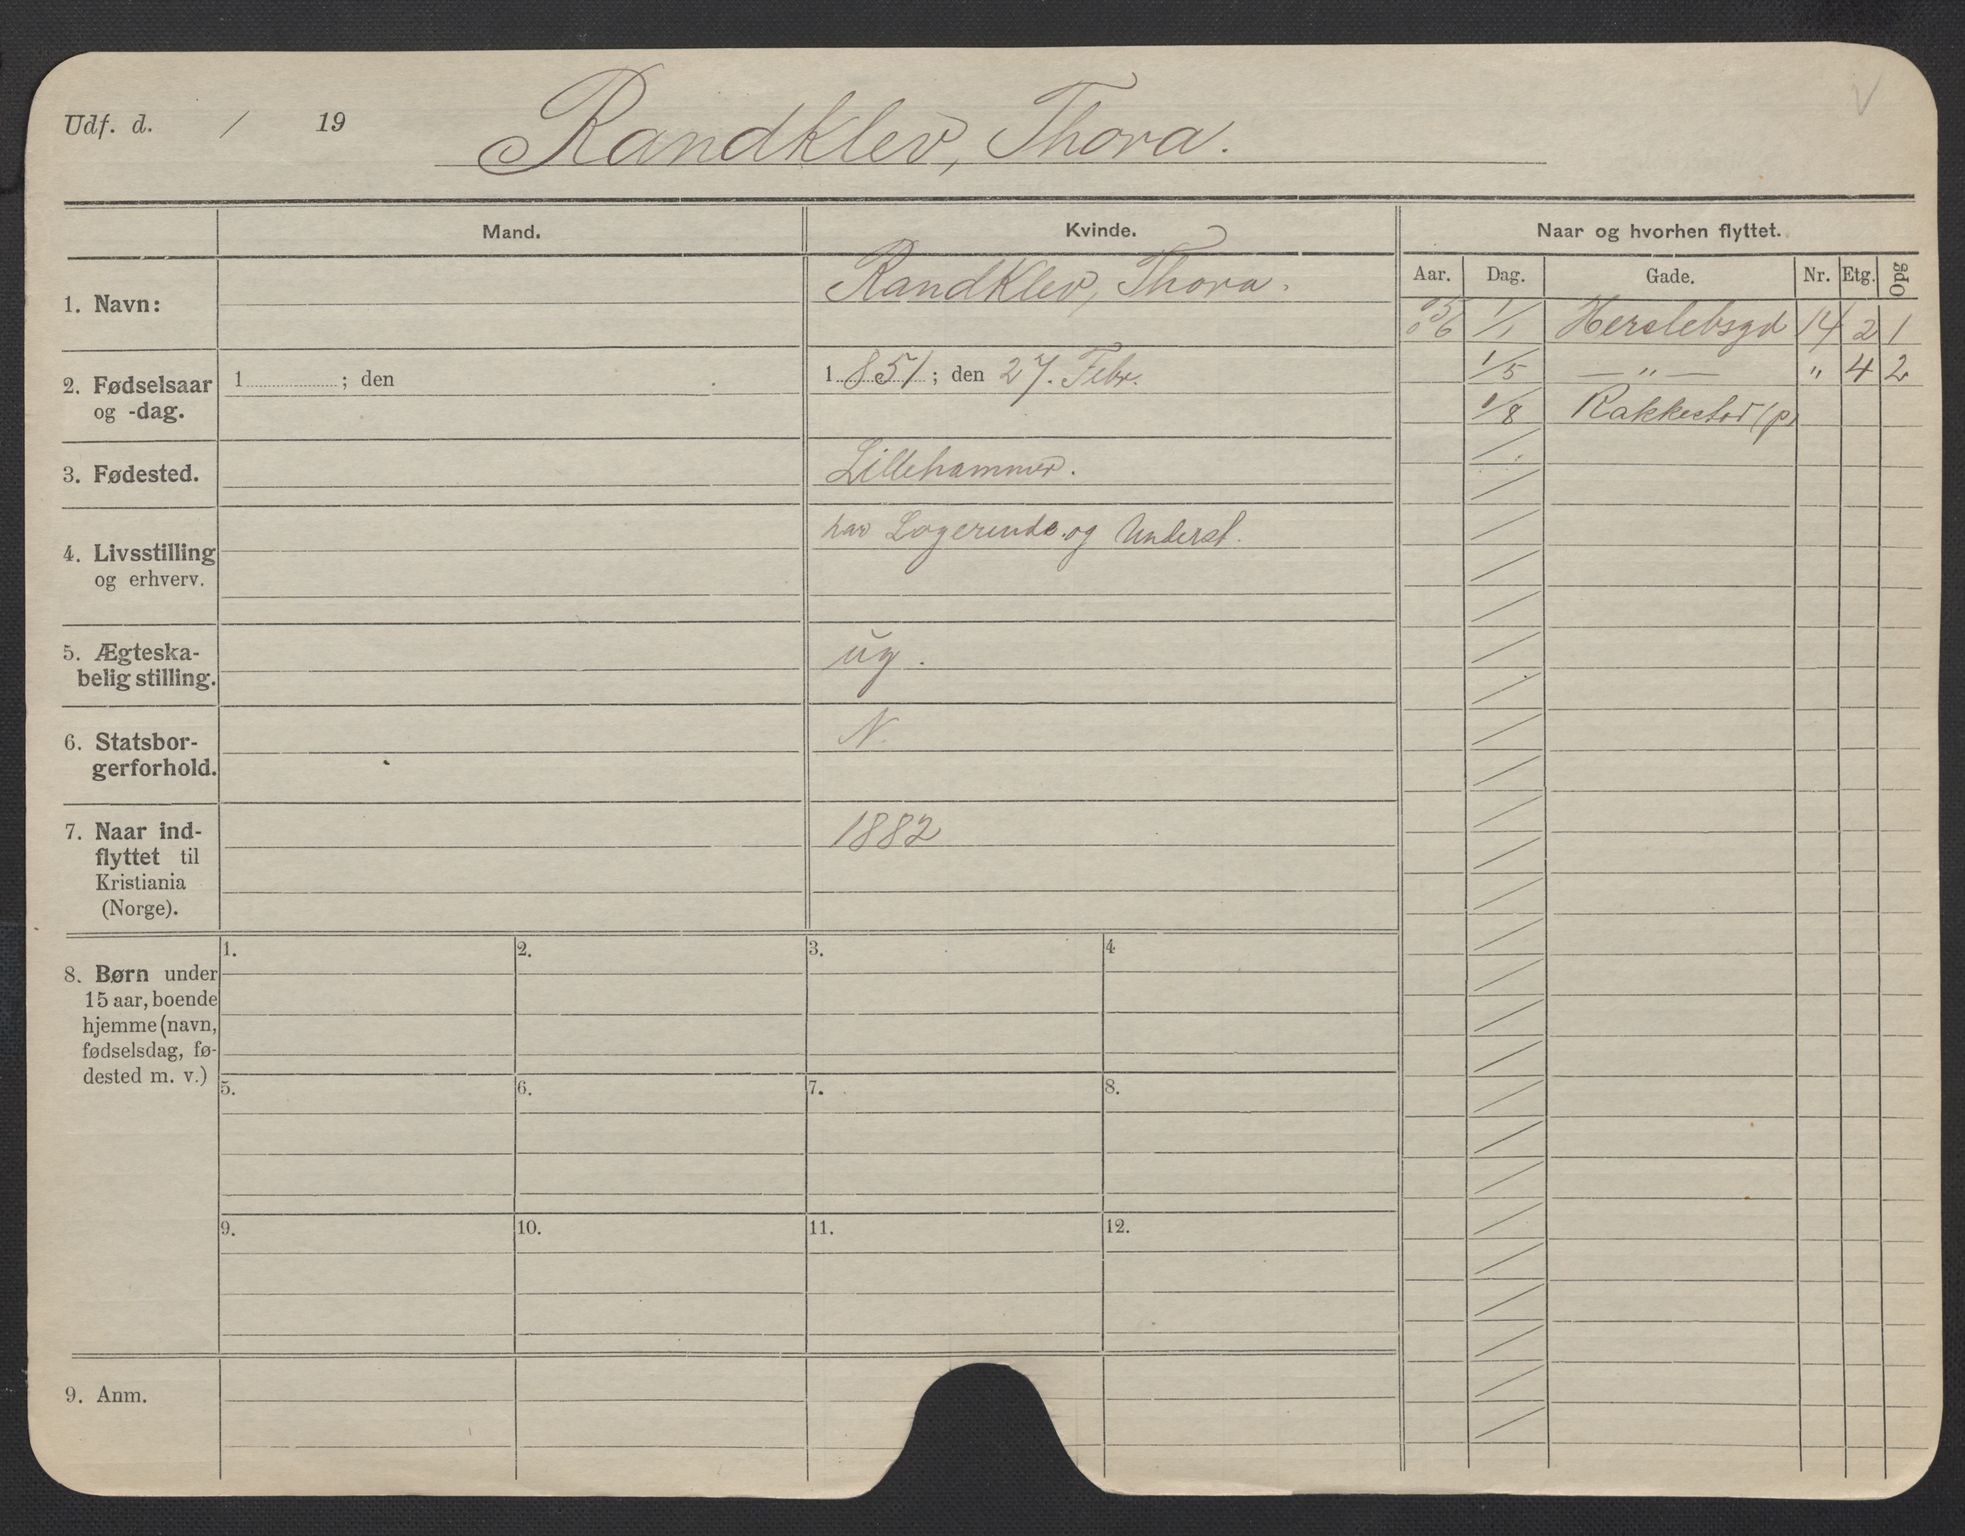 Udf. d. / 19
Randklev, Thora.
Mand.
Kvinde.
Naar og hvorhen flyttet.
Aar. Dag. Gade. Nr. Etg. Opg
1. Navn:
Randklev, Thora.
2. Fødselsaar
og -dag.
1 ; den
1851; den 27. Febr.
3. Fødested.
Lillehammer.
4. Livsstilling
og erhverv.
har Logerende og Underst.
5. Ægteska-
belig stilling.
ug.
6. Statsbor-
gerforhold.
N.
7. Naar ind-
flyttet til
Kristiania
(Norge).
1882
8. Børn under
15 aar, boende
hjemme (navn,
fødselsdag, fø-
dested m. v.)
1. 2. 3. 4
5. 6. 7. 8.
9. 10. 11. 12.
9. Anm.
05
06 1/1 Herslebsgd 14 2 1
1/5 — „ — „ 4 2
1/8 Rakkestad (p)